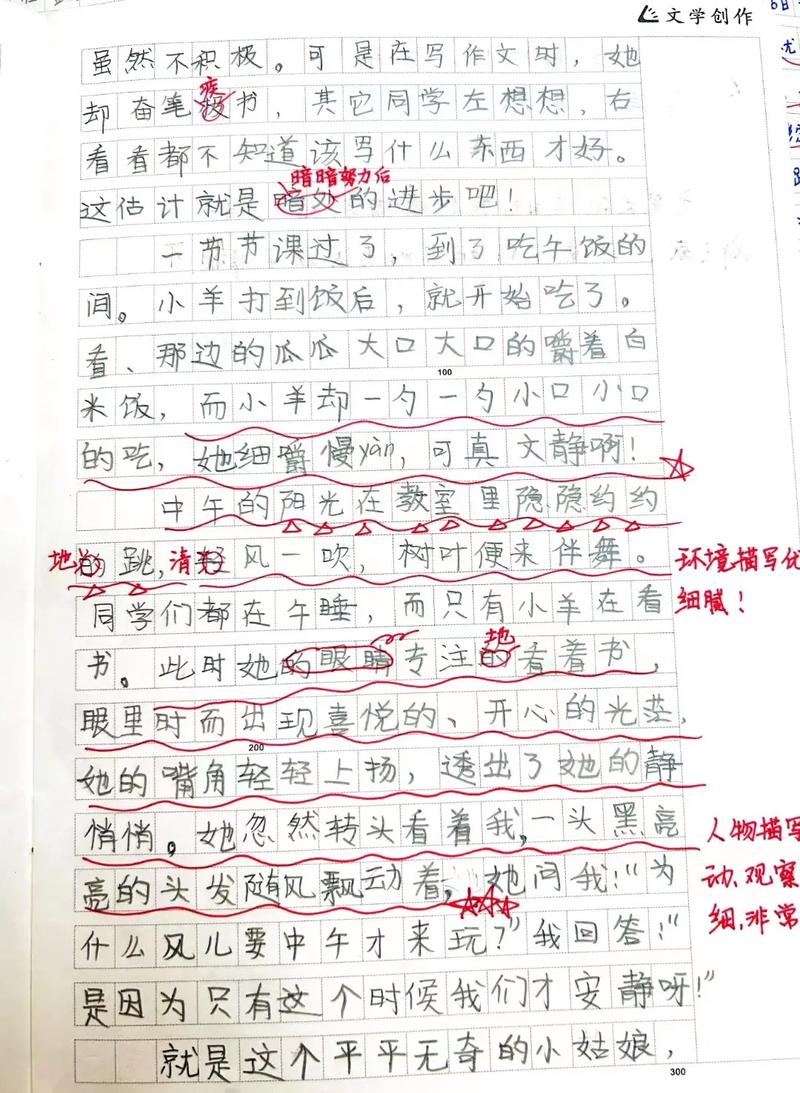 文学创作
虽然不积极。可是在写作文时，她
疾
却奋笔极书，其它同学左想想，右
看看都不知道该写什么东西才好。
暗暗努力后
这估计就是暗处的进步吧！
一节节课过了，到了吃午饭的
间。小羊打到饭后，就开始吃了。
看、那边的瓜瓜大口大口的嚼着白
100
米饭，而小羊却一勺一勺小口小口
的吃，她细嚼慢yàn，可真文静啊！
中午的阳光在教室里隐隐约约
地的跳，清轻风一吹，树叶便来伴舞。
环境描写优
细腻！
同学们都在午睡，而只有小羊在看
地
书。此时她的眼睛专注的看着书，
眼里时而出现喜悦的、开心的光茫，
200
她的嘴角轻轻上扬，透出了她的静
悄悄。她忽然转头看着我，一头黑亮
人物描写
亮的头发随风飘动着，她问我：“为
动、观察
细，非常
什么风儿要中午才来玩？”我回答：“
是因为只有这个时候我们才安静呀！”
就是这个平平无奇的小姑娘，
300